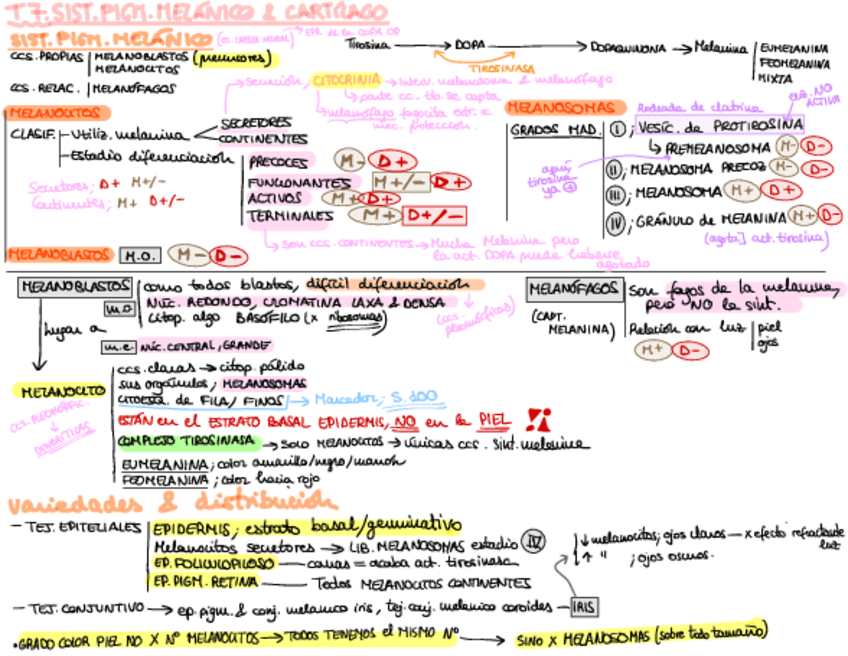 T.7. SIST. PIGM. MELÁNICO & CARTÍLAGO
SIST. PIGM. MELÁNICO
Tirosina → DOPA → DOPAQUINONA → Melanina | EUMELANINA
FEOMELANINA
MIXTA
TIROSINASA
CCS. PROPIAS | MELANOBLASTOS (precursores)
MELANOCITOS
CCS. RELAC. | MELANÓFAGOS
→ Secreción, CITOCRINIA
→ parte cc. tlo. se capta
MELANOCITOS
CLASIF. – Utiliz. melanina < SECRETORES
CONTINENTES
– Estadio diferenciación
PRECOCES M- D+
FUNCIONANTES M+/- D+
ACTIVOS M+ D+
TERMINALES M+ D+/-
Secretores; D+ M+/-
Continentes; M+ D+/-
→ Son ccs. CONTINENTES → Mucha Melanina pero
la act. DOPA puede haberse
agotado
MELANOBLASTOS M.O. M- D-
MELANOSOMAS Rodeada de clatrina
GRADOS MAD. I ; VESÍC. de PROTIROSINA
NO ACTIVA
↳ PREMELANOSOMA M- D-
aquí, tirosina ya +
II ; MELANOSOMA PRECOZ M- D-
III ; MELANOSOMA M+ D+
IV ; GRÁNULO de MELANINA M+ D-
(agota] act. tirosina)
MELANOBLASTOS | como todos blastos, difícil diferenciación
m.o. NÚC. REDONDO, CROMATINA LAXA & DENSA
citop. algo BASÓFILO (x ribosomas)
lugar a
m.e. NÚC. CENTRAL, GRANDE
MELANÓFAGOS | Son fagos de la melanina,
pero NO la sint.
(CAPT. MELANINA)
Relación con luz | piel
ojos
M+ D-
MELANOCITO
CCS. claras → citop. pálido
sus orgánulos; MELANOSOMAS
CITOESQ. de FILA/ FINOS → Marcador; S. 100
ESTÁN en el ESTRATO BASAL EPIDERMIS, NO en la PIEL
COMPLEJO TIROSINASA → Solo MELANOCITOS → únicas ccs. sint. melanina
EUMELANINA; color amarillo/negro/marrón
FEOMELANINA; color hacia rojo
DENDRÍTICAS
variedades & distribución
– TEJ. EPITELIALES | EPIDERMIS; estrato basal/germinativo
Melanocitos secretores → LIB. MELANOSOMAS estadio IV
EP. FOLICULOPILOSO – canas = acaba act. tirosinasa
EP. PIGM. RETINA – Todos MELANOCITOS CONTINENTES
↓ melanocitos; ojos claros – x efecto refractante luz
↑ " ; ojos oscuros.
– TEJ. CONJUNTIVO → ep. pigm. & conj. melánico iris, tej. conj. melánico coroides – IRIS
• GRADO COLOR PIEL NO X Nº MELANOCITOS → TODOS TENEMOS el MISMO Nº → SINO X MELANOSOMAS (sobre todo tamaño)